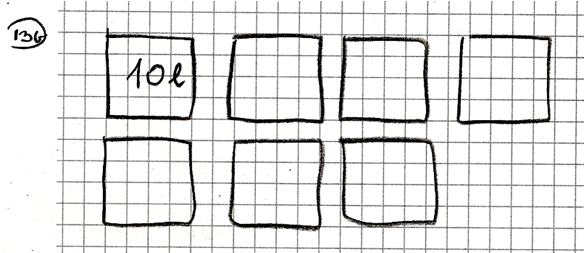 136
10l